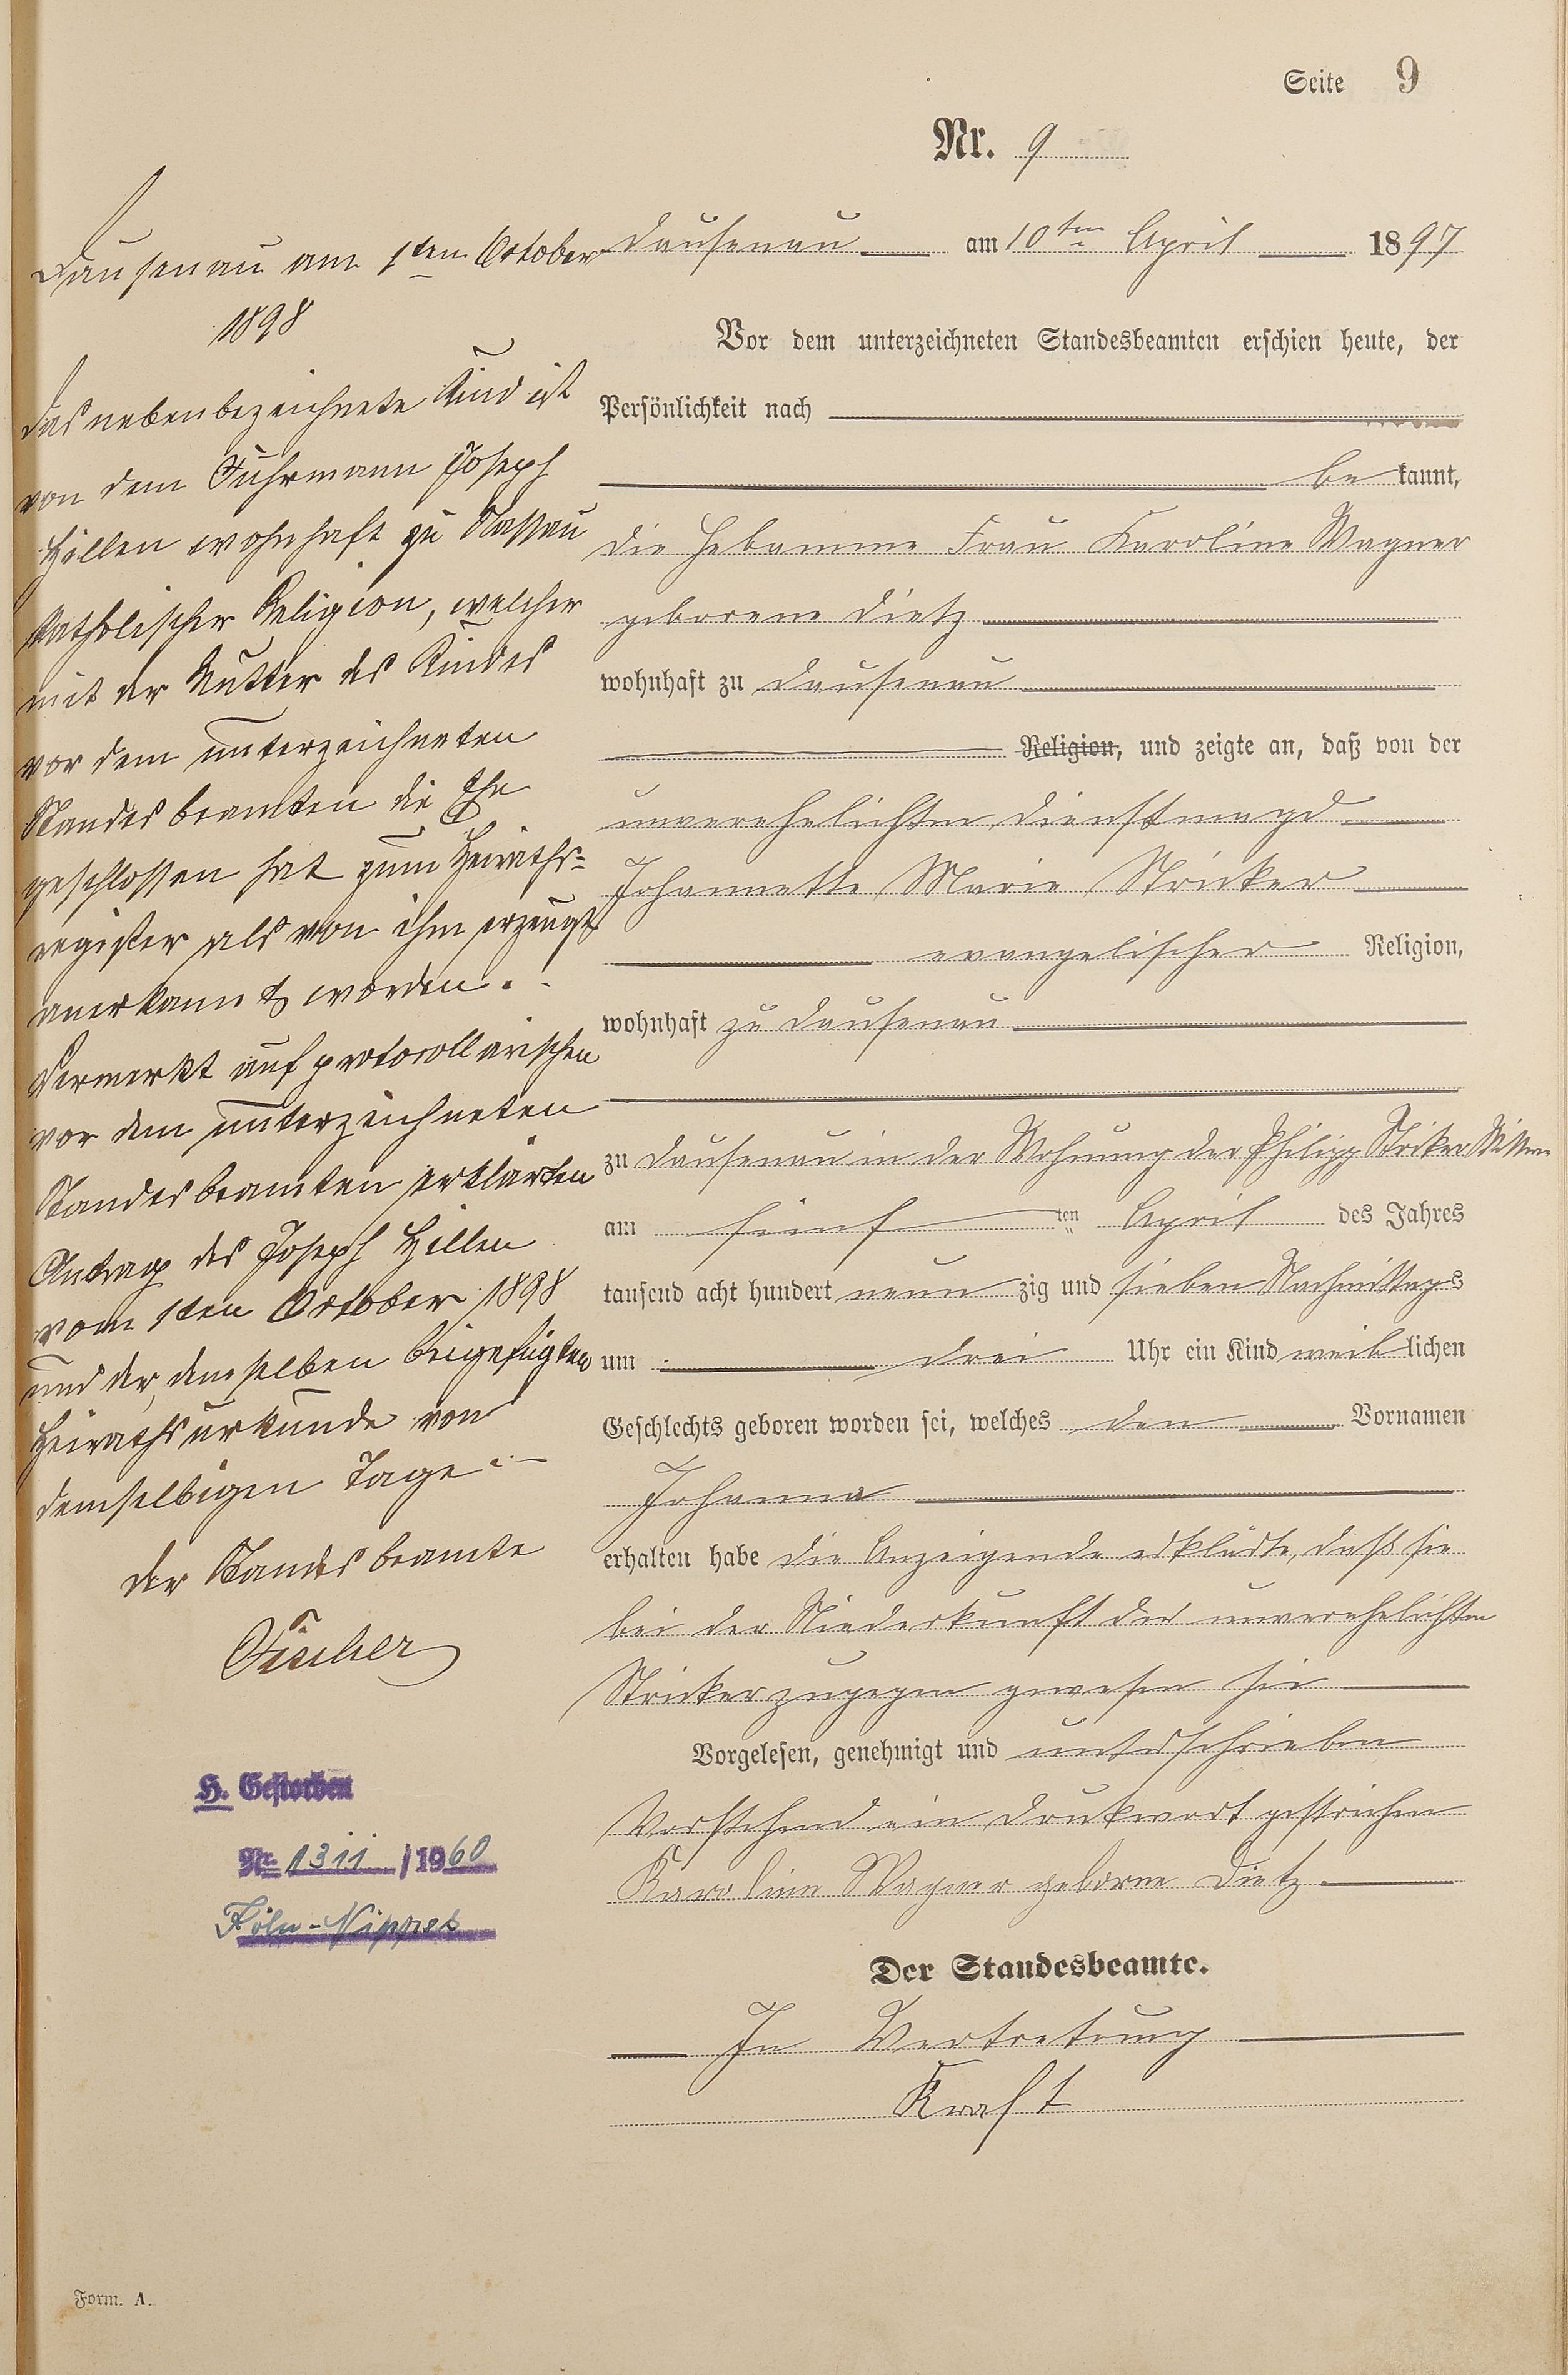 Seite 9
Nr. 9
Dausenau am 10ten April 1897
Vor dem unterzeichneten Standesbeamten erschien heute, der
Persönlichkeit nach
be kannt,
die Hebamme Frau Karoline Wagner
geborene Dietz
wohnhaft zu Dausenau
Religion, und zeigte an, daß von der
unverehelichten Dienstmagd
Johannette Marie Stricker
evangelischer Religion,
wohnhaft zu Dausenau
zu Dausenau in der Wohnung der Philipp Stricker Wittwe
am fünf ten April des Jahres
tausend acht hundert neun zig und sieben Nachmittags
um drei Uhr ein Kind weib lichen
Geschlechts geboren worden sei, welches den Vornamen
Johanna
erhalten habe die Anzeigende erklärte, daß sie
bei der Niederkunft der unverehelichten
Stricker zugegen gewesen sei
Vorgelesen, genehmigt und unterschrieben
Vorstehend ein Druckwort gestrichen
Karoline Wagner geborne Dietz
Der Standesbeamte.
In Vertretung
Kraft
Dausenau am 1ten October
1898
Das nebenbezeichnete Kind ist
von dem Fuhrmann Joseph
Hillen wohnhaft zu Nassau
katholischer Religion, welcher
mit der Mutter des Kindes
vor dem unterzeichneten
Standesbeamten die Ehe
geschlossen hat zum Heiraths-
register als von ihm erzeugt
anerkannt worden.
Vermerkt auf protocollarischen
vor dem unterzeichneten
Standesbeamten erklärten
Antrag des Joseph Hillen
vom 1ten October 1898
und der, demselben beigefügten
Heirathsurkunde von
demselbigen Tage.
Der Standesbeamte
Fischer
H. Gestorben
Nr. 1311 / 1960
Köln-Nippes
Form. A.